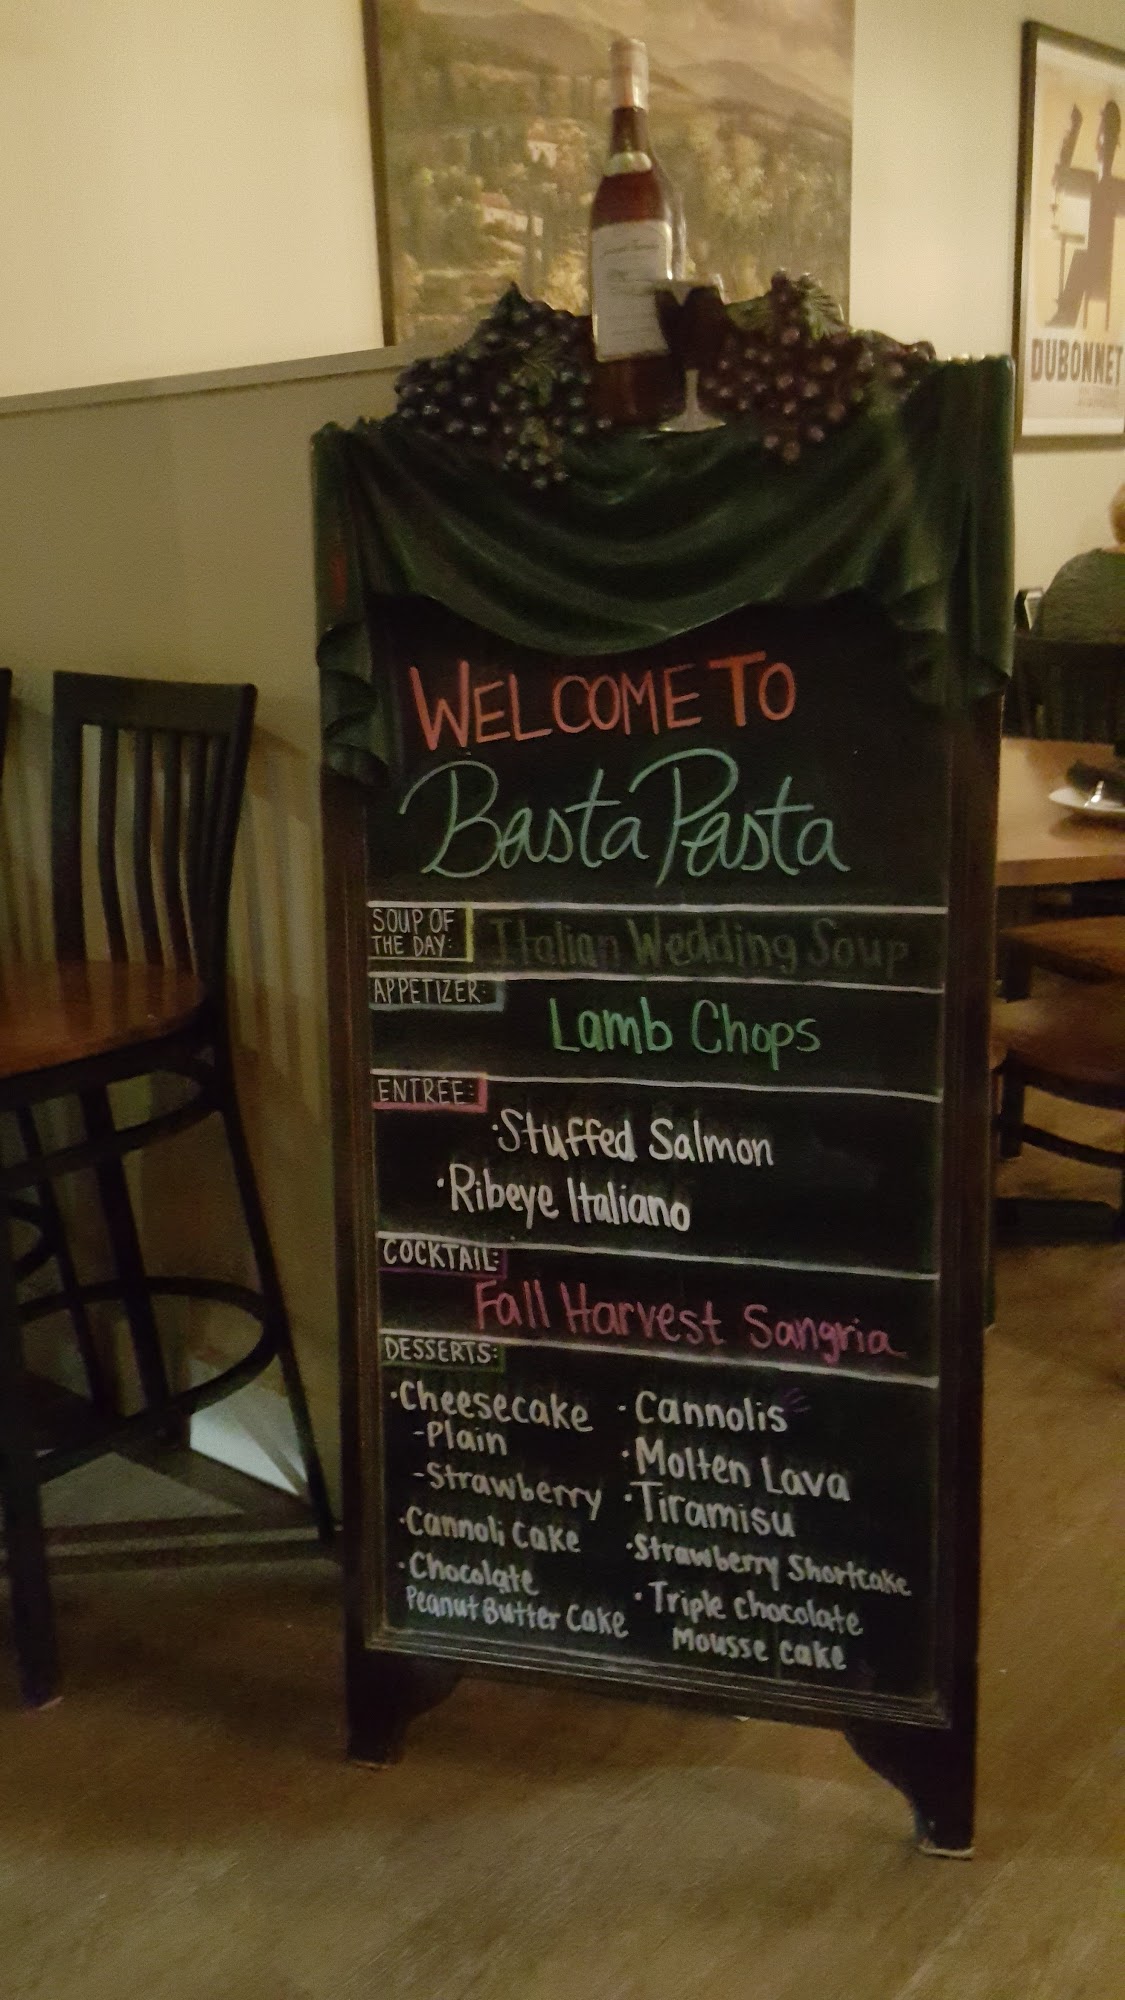 DUBONNET
WELCOME TO
Basta Pasta
SOUP OF
THE DAY:
Italian Wedding Soup
APPETIZER:
Lamb Chops
ENTRÉE:
·Stuffed Salmon
·Ribeye Italiano
COCKTAIL:
Fall Harvest Sangria
DESSERTS:
·Cheesecake
-Plain
-Strawberry
·Cannoli Cake
·Chocolate
Peanut Butter Cake
·Cannolis
·Molten Lava
·Tiramisu
·Strawberry Shortcake
·Triple chocolate
Mousse cake